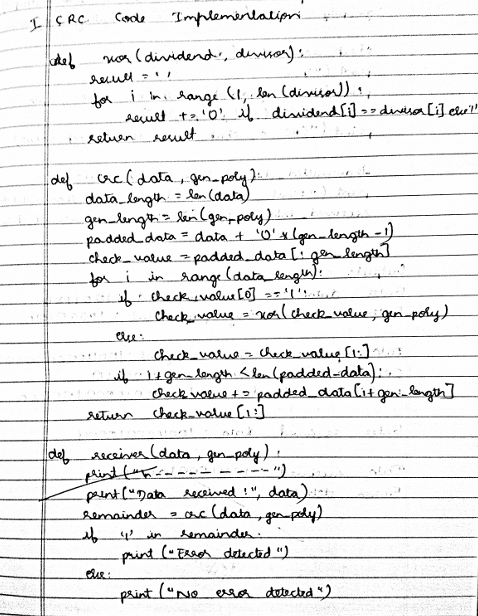 I CRC Code Implementation
def xor(dividend, divisor):
result = ''
for i in range(1, len(divisor)):
result += '0' if dividend[i] == divisor[i] else '1'
return result
def crc(data, gen_poly):
data_length = len(data)
gen_length = len(gen_poly)
padded_data = data + '0' * (gen_length - 1)
check_value = padded_data[: gen_length]
for i in range(data_length):
if check_value[0] == '1':
check_value = xor(check_value, gen_poly)
else:
check_value = check_value[1:]
if i + gen_length < len(padded_data):
check_value += padded_data[i + gen_length]
return check_value[1:]
def receiver(data, gen_poly):
print("\n---------")
print("Data received :", data)
remainder = crc(data, gen_poly)
if '1' in remainder:
print("Error detected")
else:
print("No error detected")